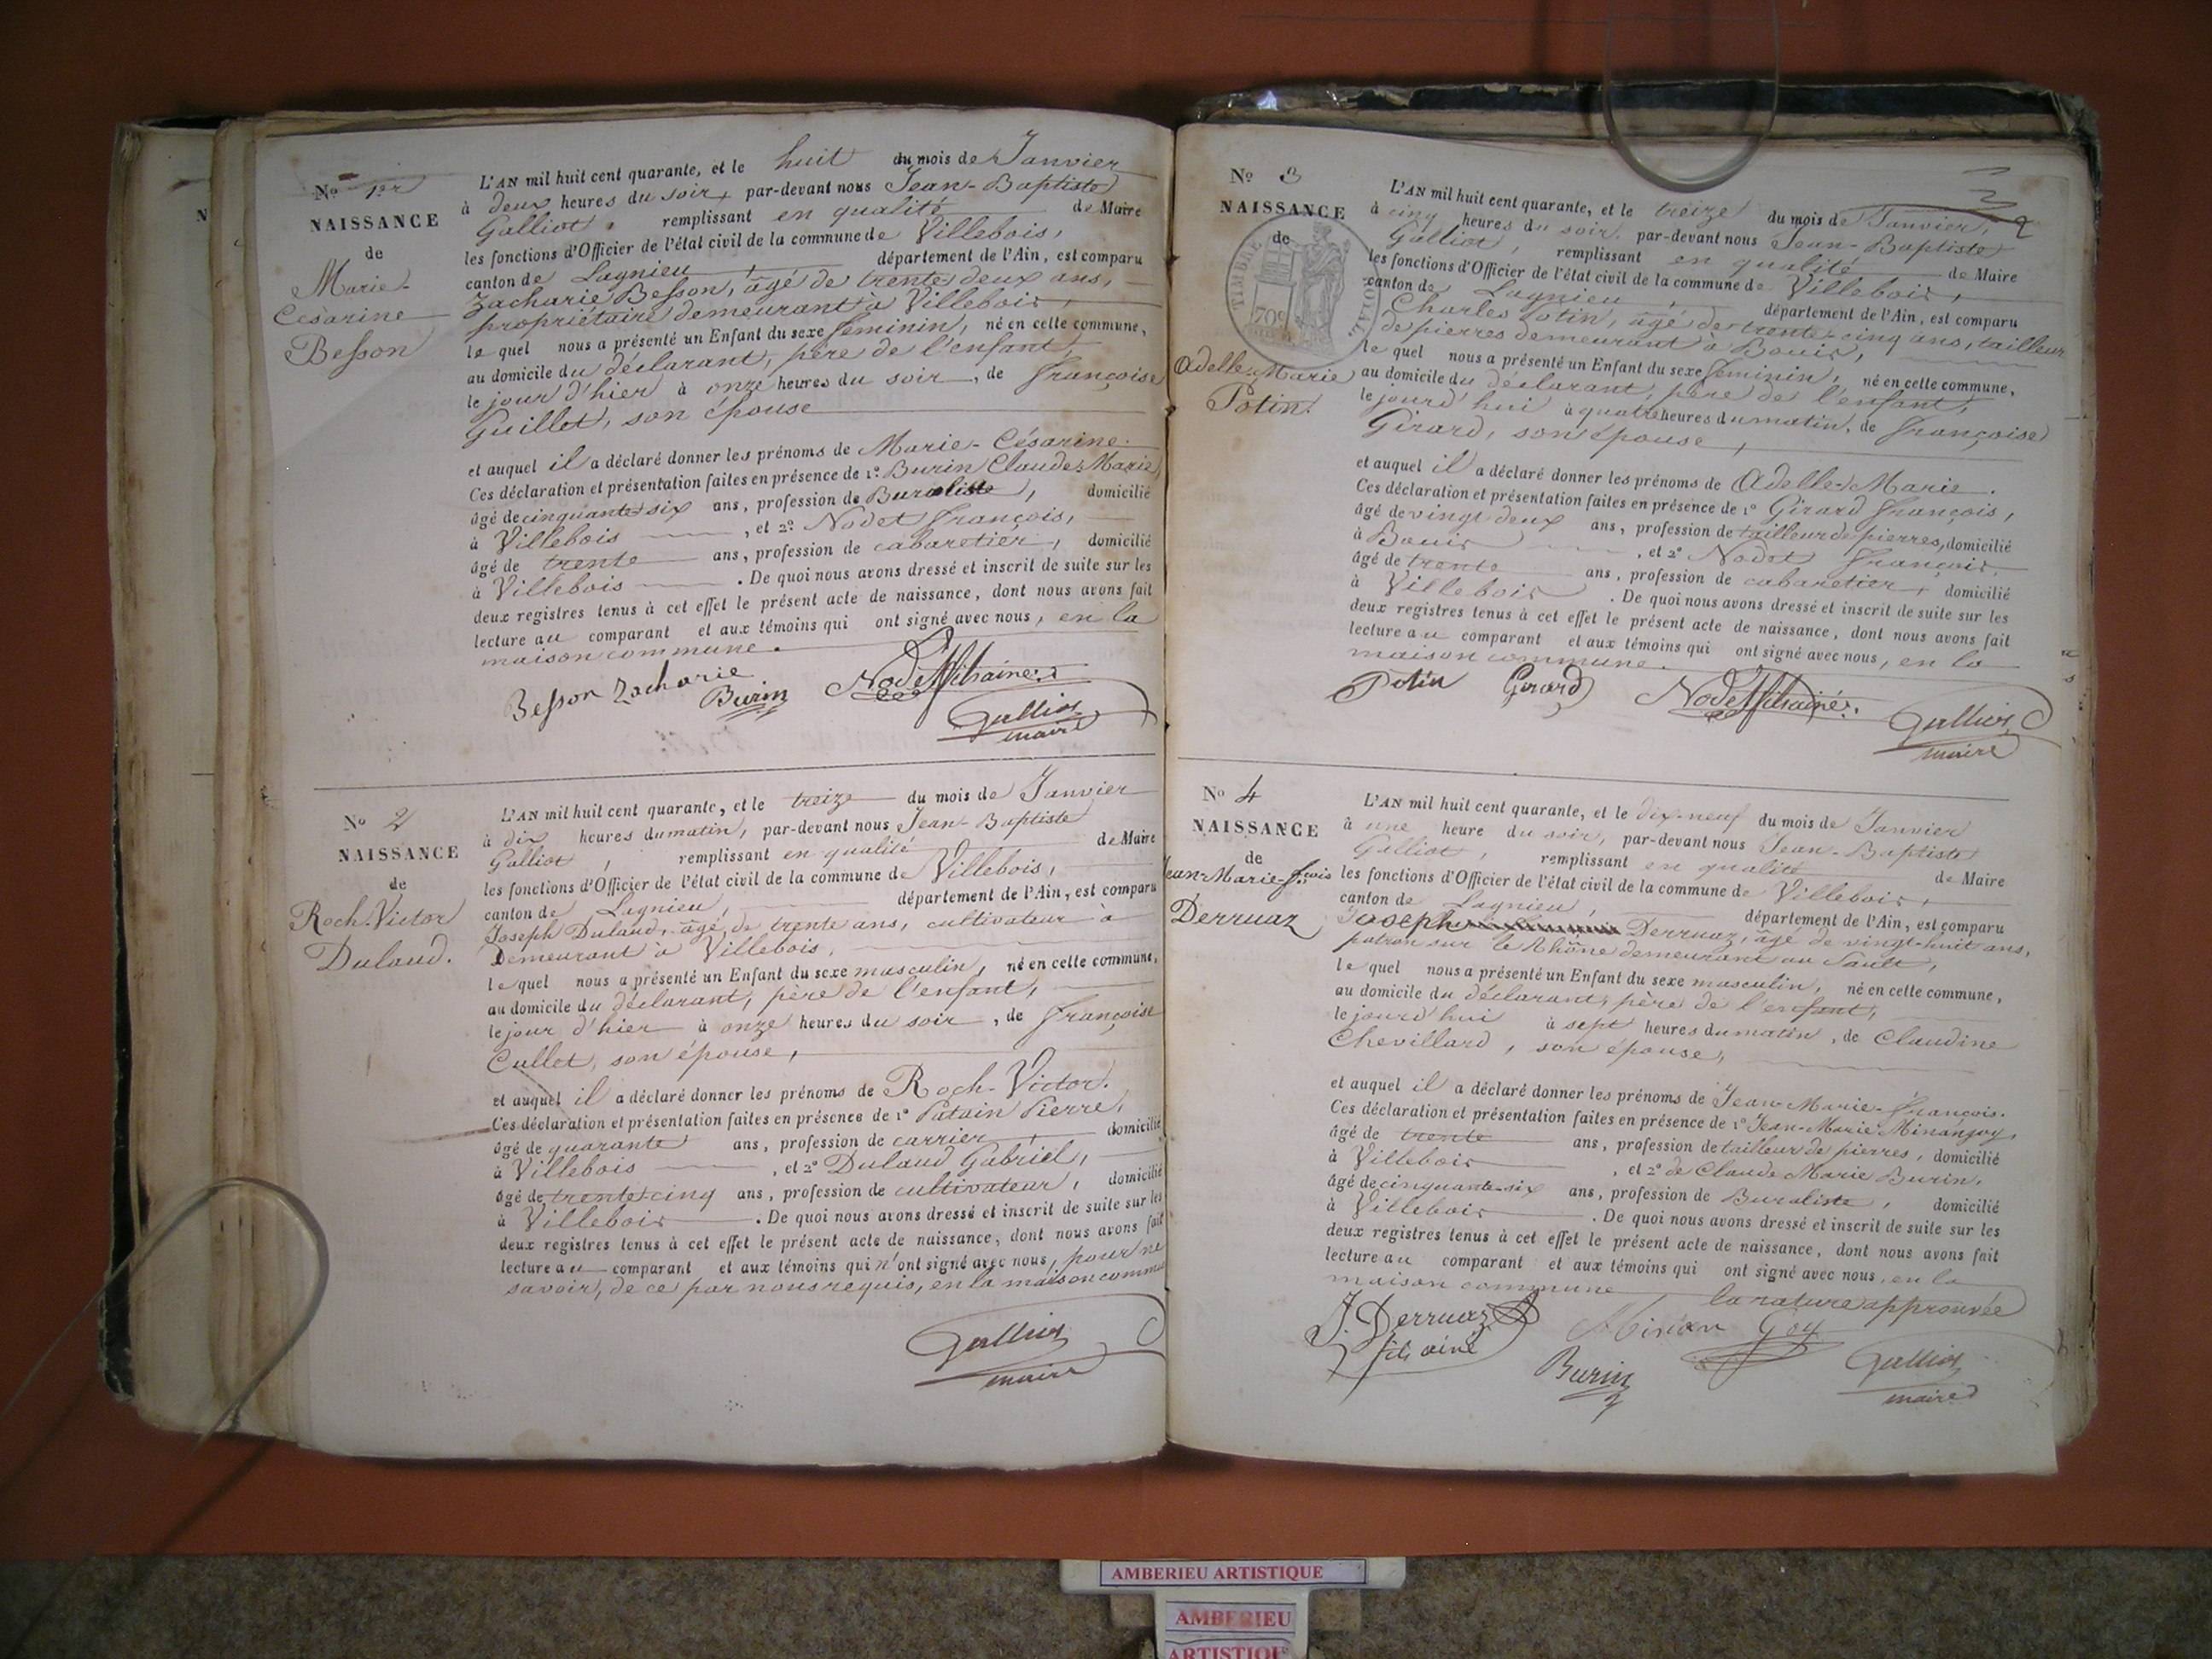 No 1er
NAISSANCE
de
Marie-
Césarine
Besson
L'AN mil huit cent quarante, et le huit du mois de Janvier
à deux heures du soir, par-devant nous Jean-Baptiste
Galliot, remplissant en qualité de Maire
les fonctions d'Officier de l'état civil de la commune de Villebois,
canton de Lagnieu, département de l'Ain, est comparu
Zacharie Besson, âgé de trente deux ans,
propriétaire demeurant à Villebois,
lequel nous a présenté un Enfant du sexe féminin, né en cette commune,
au domicile du déclarant, père de l'enfant,
le jour d'hier à onze heures du soir, de Françoise
Guillet, son épouse
et auquel il a déclaré donner les prénoms de Marie-Césarine.
Ces déclaration et présentation faites en présence de 1º Burin Claude-Marie,
âgé de cinquante-six ans, profession de Buraliste, domicilié
à Villebois, et 2º Nodet François,
âgé de trente ans, profession de cabaretier, domicilié
à Villebois. De quoi nous avons dressé et inscrit de suite sur les
deux registres tenus à cet effet le présent acte de naissance, dont nous avons fait
lecture au comparant et aux témoins qui ont signé avec nous, en la
maison commune.
Besson Zacharie Burin Nodet fils ainé
Galliot
maire
No 2
NAISSANCE
de
Roch-Victor
Dulaud.
L'AN mil huit cent quarante, et le treize du mois de Janvier
à dix heures du matin, par-devant nous Jean-Baptiste
Galliot, remplissant en qualité de Maire
les fonctions d'Officier de l'état civil de la commune de Villebois,
canton de Lagnieu, département de l'Ain, est comparu
Joseph Dulaud, âgé de trente ans, cultivateur à
Demeurant à Villebois,
lequel nous a présenté un Enfant du sexe masculin, né en cette commune,
au domicile du déclarant, père de l'enfant,
le jour d'hier à onze heures du soir, de Françoise
Cullet, son épouse,
et auquel il a déclaré donner les prénoms de Roch-Victor.
Ces déclaration et présentation faites en présence de 1º Patain Pierre,
âgé de quarante ans, profession de carrier, domicilié
à Villebois, et 2º Dulaud Gabriel,
âgé de trente-cinq ans, profession de cultivateur, domicilié
à Villebois. De quoi nous avons dressé et inscrit de suite sur les
deux registres tenus à cet effet le présent acte de naissance, dont nous avons fait
lecture au comparant et aux témoins qui n'ont signé avec nous, pour ne
savoir, de ce par nous requis, en la maison commu
Galliot
maire
No 3
NAISSANCE
de
TIMBRE ROYAL
70c
Adelle-Marie
Potin.
2
L'AN mil huit cent quarante, et le treize du mois de Janvier,
à cinq heures du soir, par-devant nous Jean-Baptiste
Galliot, remplissant en qualité de Maire
les fonctions d'Officier de l'état civil de la commune de Villebois,
canton de Lagnieu, département de l'Ain, est comparu
Charles Potin, âgé de trente-cinq ans, tailleur
de pierres demeurant à Bouis,
lequel nous a présenté un Enfant du sexe féminin, né en cette commune,
au domicile du déclarant, père de l'enfant,
le jourd'hui à quatre heures du matin, de Françoise
Girard, son épouse,
et auquel il a déclaré donner les prénoms de Adelle-Marie.
Ces déclaration et présentation faites en présence de 1º Girard François,
âgé de vingt deux ans, profession de tailleur de pierres, domicilié
à Bouis, et 2º Nodet François,
âgé de trente ans, profession de cabaretier, domicilié
à Villebois. De quoi nous avons dressé et inscrit de suite sur les
deux registres tenus à cet effet le présent acte de naissance, dont nous avons fait
lecture au comparant et aux témoins qui ont signé avec nous, en la
maison commune.
Potin Girard Nodet fils ainé
Galliot
maire
No 4
NAISSANCE
de
Jean-Marie-Fçois
Derruaz
L'AN mil huit cent quarante, et le dix-neuf du mois de Janvier
à une heure du soir, par-devant nous Jean-Baptiste
Galliot, remplissant en qualité de Maire
les fonctions d'Officier de l'état civil de la commune de Villebois,
canton de Lagnieu, département de l'Ain, est comparu
Joseph Derruaz, âgé de vingt-huit ans,
patron sur le Rhône demeurant au Sault,
lequel nous a présenté un Enfant du sexe masculin, né en cette commune,
au domicile du déclarant, père de l'enfant,
le jourd'hui à sept heures du matin, de Claudine
Chevillard, son épouse,
et auquel il a déclaré donner les prénoms de Jean-Marie-François.
Ces déclaration et présentation faites en présence de 1º Jean-Marie Minangoy,
âgé de trente ans, profession de tailleur de pierres, domicilié
à Villebois, et 2º de Claude Marie Burin,
âgé de cinquante-six ans, profession de Buraliste, domicilié
à Villebois. De quoi nous avons dressé et inscrit de suite sur les
deux registres tenus à cet effet le présent acte de naissance, dont nous avons fait
lecture au comparant et aux témoins qui ont signé avec nous, en la
maison commune la rature approuvée
J. Derruaz
fils ainé
Burin
Galliot
maire
AMBERIEU ARTISTIQUE
AMBERIEU
ARTISTIQUE